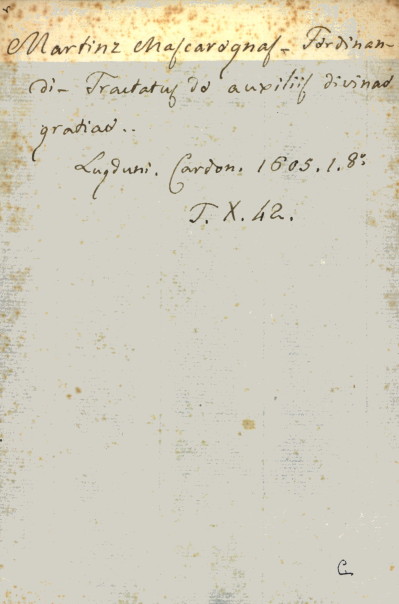 Martinz Mascaregnas - Ferdinan-
di - Tractatus de auxiliis divinae
gratiae..
Lugduni. Cardon. 1605. 1. 8º.
T. X. 42.
C.